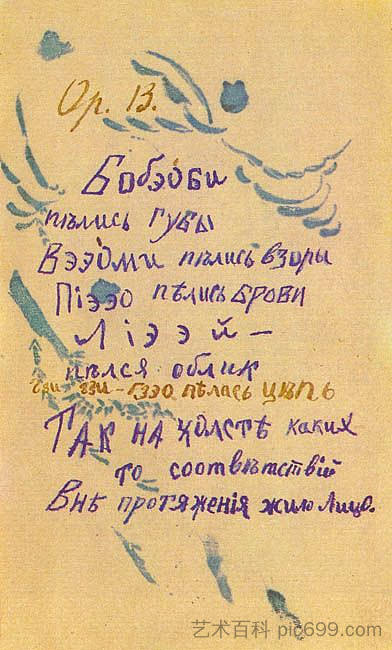 Ор. 13.
Бобэоби
пѣлись губы
Вээоми пѣлись взоры
Піээо пѣлись брови
Ліээй –
пѣлся облик
Гзи-гзи-гзэо пѣлась цѣпь
Так на холстѣ каких
то соотвѣтствій
Внѣ протяженія жило Лицо.
艺术百科 pic699.com